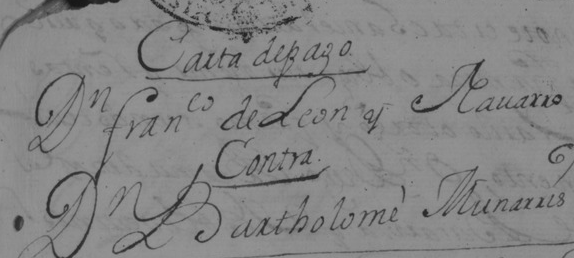 Carta de pago
Dn franco de Leon y Nauarro
Contra.
Dn Bartholomè Munarris